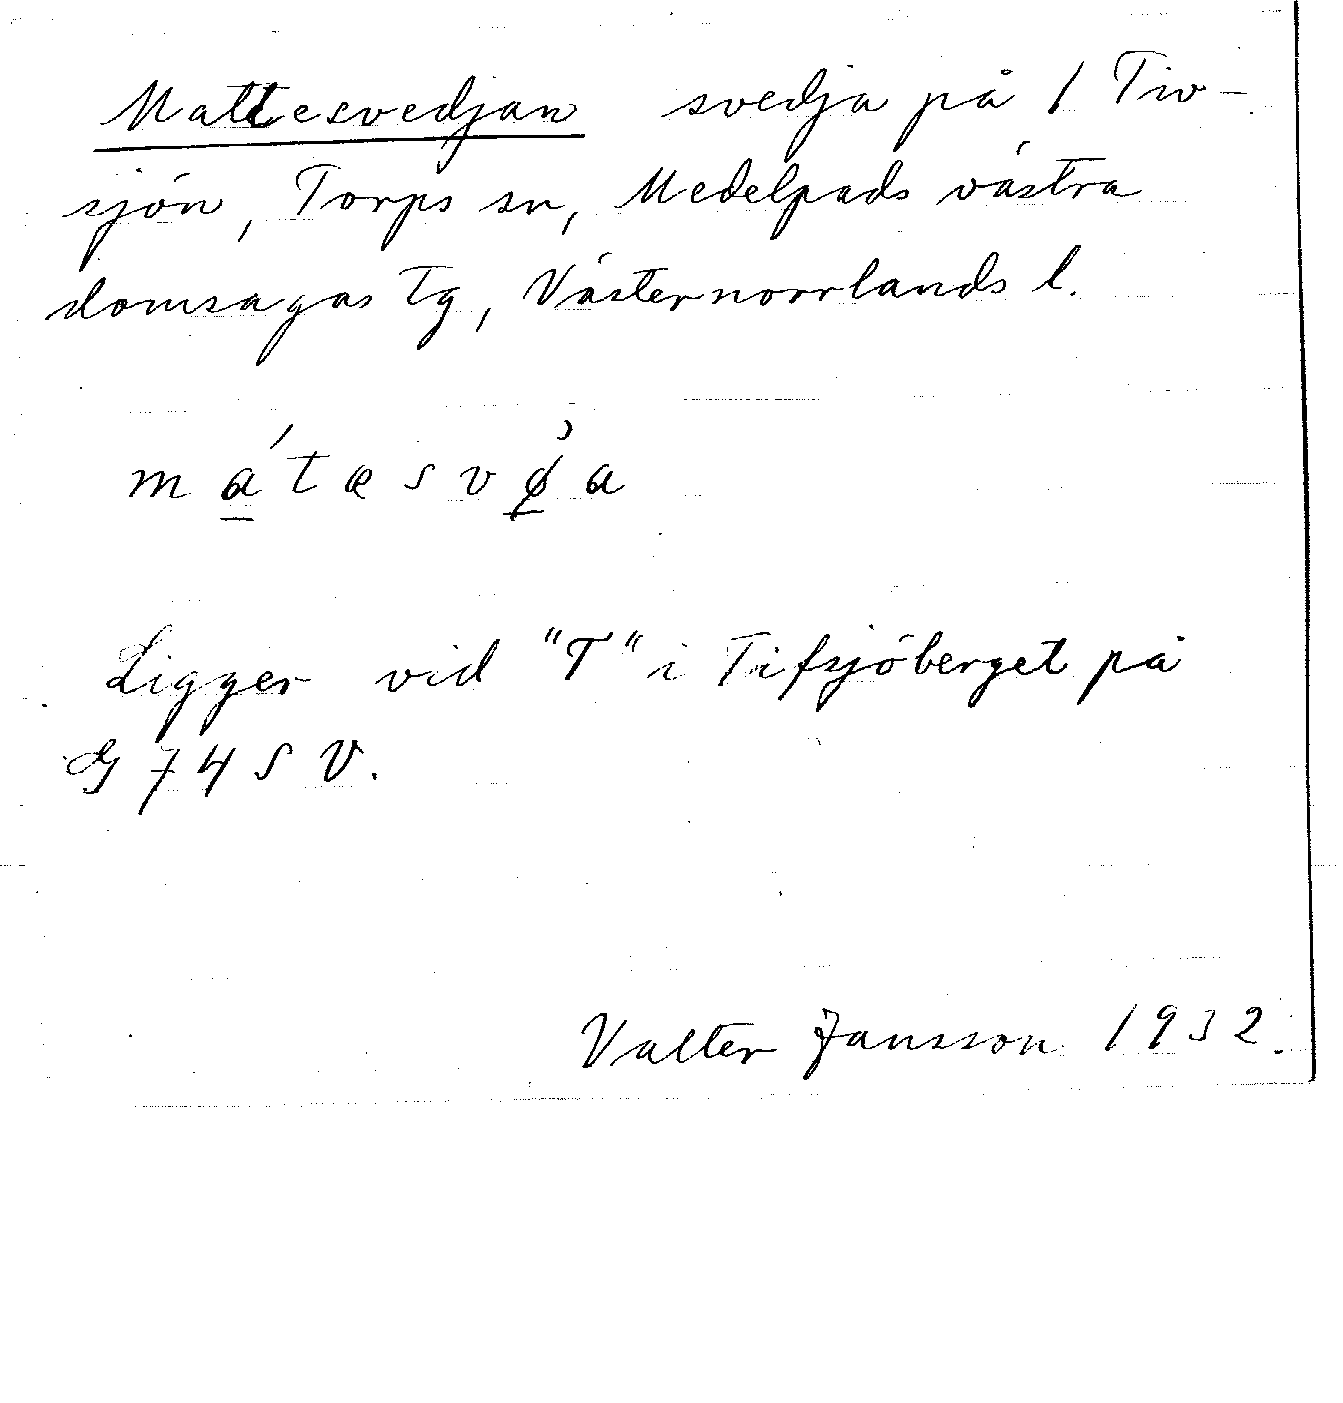 Mattesvedjan svedja på 1 Tiv-
sjön, Torps sn, Medelpads västra
domsagas tg, Västernorrlands l.
mátæsvø̀a
Ligger vid "T" i Tifsjöberget på
G 74 S V.
Valter Jansson 1932.